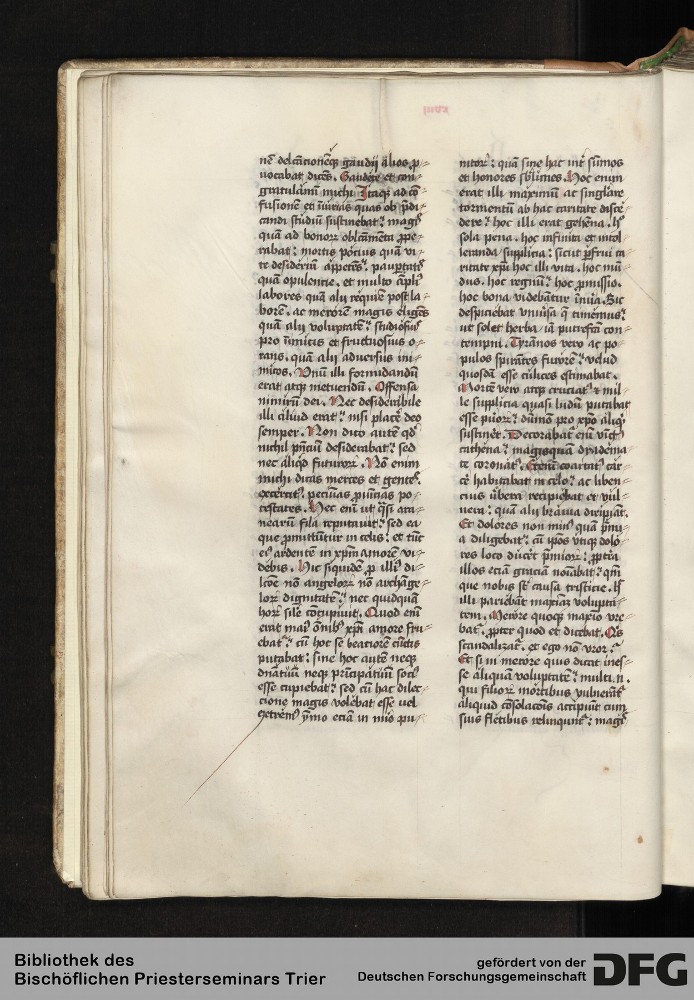 xviij
nē delcātionēqꝫ gaudij alios ꝓ=
uocabat dicēs. Gaudete et con=
gratulamī michi. Itaqꝫ ad cō=
fusionē et iniurias quas ob p̄di=
candi studiū sustinebat: magꝭ
quā ad honorꝝ oblectamēta ꝓpe=
rabat: mortis pocius quā vi=
te desideriū appetēs: paup̄tatꝭ
quā opulencie. et multo ampliꝰ
labores quā alij requiem post la=
borē. ac merorē magis eligēs
quā alij voluptatē: studiosiꝰ
pro inimicis et fructuosius o=
rans. quā alij aduersus ini=
micos. Vnū illi formidandū
erat atqꝫ metuendū. Offensa
nimirū dei. Nec desiderabile
illi aliud erat: nisi placē deo
semper. Non dico autē qd̓
nichil p̄nciū desiderabat: sed
nec aliqd̓ futurorꝝ. Nō enim
michi dicas vrbes et gentes.
exercitꝰ. pecunias ꝓuincias po=
testates. Nec enī ut q̄si ara=
nearū fila reputauit: sed ea
que ꝓmittūtur in celis. et tūc
eiꝰ ardentē in xp̄m amorē vi=
debis. Hic siquidē ꝓ illiꝰ di=
lcōne nō angelorꝝ nō archāge=
lorꝝ dignitatē: nec quidquā
horꝝ sile cōcupiuit. Quod enī
erat maiꝰ om̄ibꝰ xp̄i amore fru=
ebat: cū hoc se beatiorē cūctis
putabat: sine hoc autē neqꝫ
dn̄atiuū neqꝫ prīcipatiuū sociꝰ
esse cupiebat: sed cū hac dilec=
cione magis volebat esse vel
extremꝰ ymo eciā in nūo pu=
nitorꝝ: quā sine hac int̄ sūmos
et honores sublimes. Hoc enim
erat illi maximū ac singlāre
tormentū ab hac caritate disce=
dere: hoc illi erat gehēna. H̄
sola pena. hoc infiniti et intol=
leranda supplicia: sicut ꝑfrui ca
ritate xp̄i hoc illi vita. hoc mū=
dus. hoc regnū: hoc ꝓmissio.
hoc bona videbātur īnūa. Sic
despiciebat vniūsa q̄ timemus:
ut solet herba iā putrefcā con=
tempni. Tyrānos vero ac po=
pulos spirātes furorē: velud
quosdā esse culices estimabat.
Mortē vero atqꝫ cruciatꝰ et mil=
le supplicia quasi ludū putabat
esse puerorꝝ: dūmō pro xpō aliqd̓
sustinēt. Decorabat enī vinctꝰ
cathena: magisquā dyadema
te coronatꝰ. Etenī coartatꝰ car=
cē habitabat in celo: ac liben=
cius ūbera recipiebat et vul=
nera: quā alij brauia diripiāt.
Et dolores non minꝰ quā p̄mi=
a diligebat: cū ipos vtiqꝫ dolo=
res loco ducēt p̄miorꝝ: ꝓpterea
illos eciā graciā noīabat: qm̄
que nobis sūt causa tristicie. H̄
illi pariebāt maxiām volupta=
tem. Merore quoqꝫ maxio vre=
bat. ꝓpter quod et dicebat. Qꝭ
scandalizat̄. et ego nō vror:
Et si in merore quis dicat ines=
se aliquam voluptatē: multi .n.
qui filiorꝝ mortibus vulnerātꝰ
aliquid cōsolacōis accipiūt cum
suis fletibus relinquūt̄: magꝭ
Bibliothek des
Bischöflichen Priesterseminars Trier
gefördert von der
Deutschen Forschungsgemeinschaft
DFG